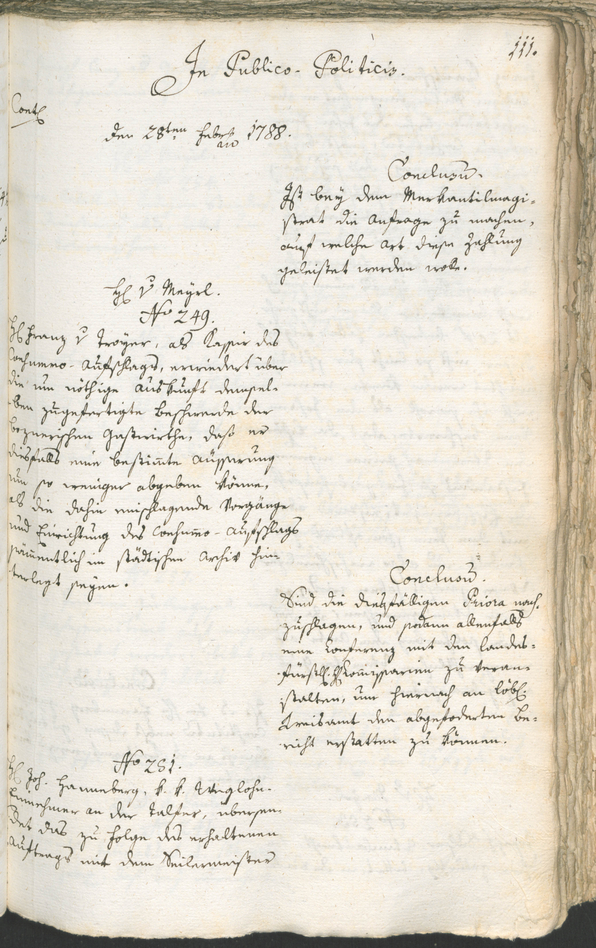 111.
In Publico-Politicis.
Cont
den 28ten Febr 1788.
Conclusū.
Ist bey dem Merkantilmagi-
strat die Anfrage zu machen,
auf welche Art diese Zahlung
geleistet werden wolle.
H v Meyrl.
No 249.
H Franz v Troyer, als Kassir des
Consumo-Aufschlags, erwiedert über
die um nöthige Auskunft demsel-
ben zugefertigte Beschwerde der
boznerischen Gastwirthe, daß er
diesfalls eine bestimte Äusserung
um so weniger abgeben könne,
als die dahin einschlagende Vorgänge
und Einrichtung des Consumo-Aufschlags
sämmentlich im städtischen Archiv hin-
terlegt seyen.
Conclusū.
Sind die diesfälligen Priora nach-
zuschlagen, und sodann allenfalls
eine Konferenz mit den landes-
fürstl. Kommissarien zu veran-
stalten, um hiernach an löbl
Kreisamt den abgeforderten Be-
richt erstatten zu können.
No 281.
H Joh. Hanneberg, k. k. Weglohn-
einnehmer an der Talfer, übersen-
det das zu Folge des erhaltenen
Auftrags mit dem Seilermeister